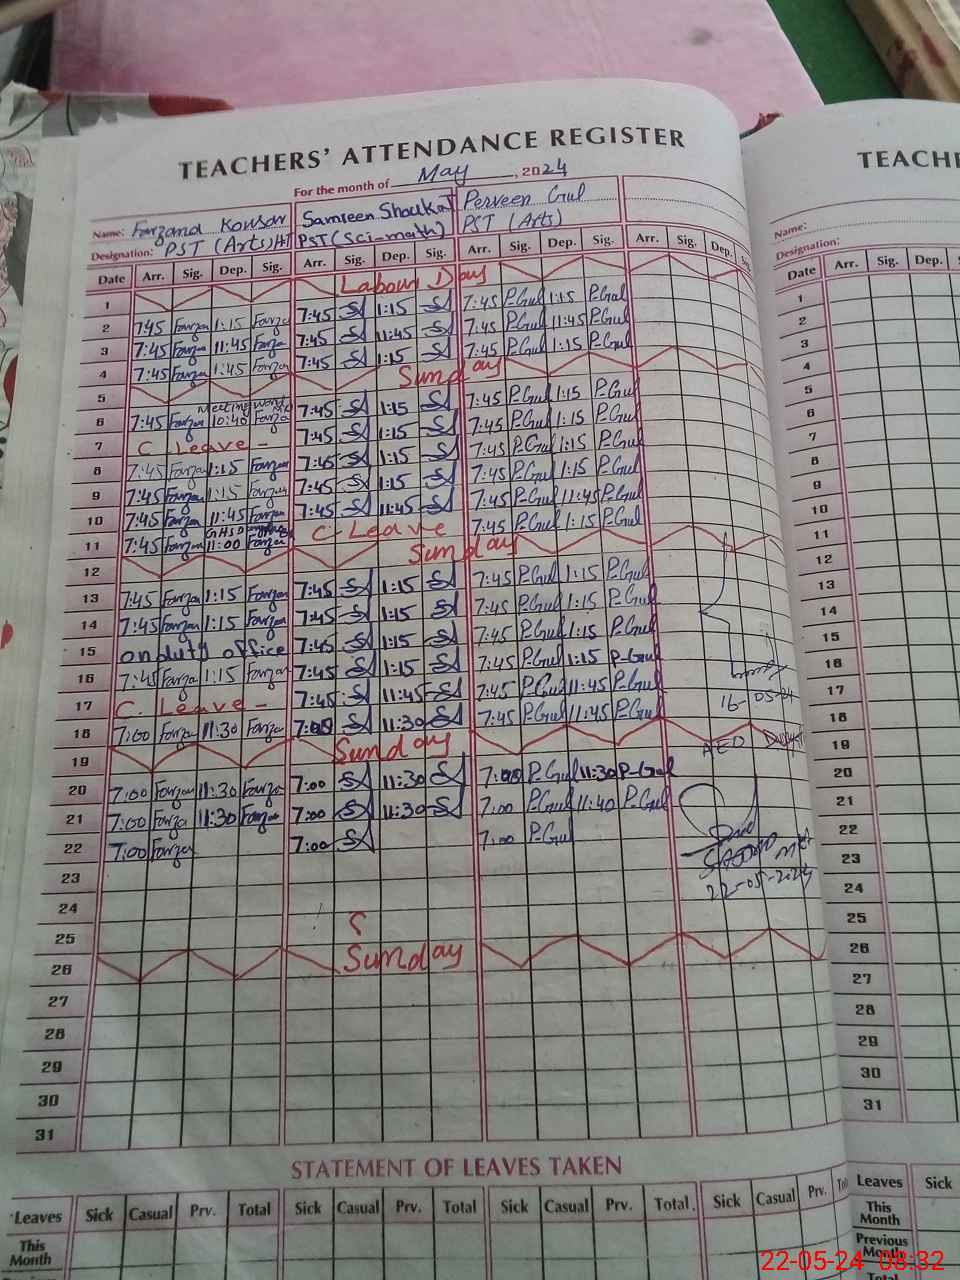 TEACHERS' ATTENDANCE REGISTER
TEACH
For the month of May, 2024
Name: Farzana Kousar Samreen Shaukat Perveen Gul
Name:
Designation: PST (Arts)/HT PST (Sci-math) PST (Arts)
Designation:
Date Arr. Sig. Dep. Sig. Arr. Sig. Dep. Sig. Arr. Sig. Dep. Sig. Arr. Sig. Dep. Sig.
Date Arr. Sig. Dep.
1 Labour Day
2 7:45 Farzan 1:15 Farzan 7:45 SA 1:15 SA 7:45 P.Gul 1:15 P.Gul
3 7:45 Farzan 11:45 Farzan 7:45 SA 11:45 SA 7:45 P.Gul 11:45 P.Gul
4 7:45 Farzan 1:45 Farzan 7:45 SA 1:15 SA 7:45 P.Gul 1:15 P.Gul
5 Sunday
6 7:45 Farzan Meeting 10:40 Farzan 7:45 SA 1:15 SA 7:45 P.Gul 1:15 P.Gul
7 C. Leave - 7:45 SA 1:15 SA 7:45 P.Gul 1:15 P.Gul
8 7:45 Farzan 1:15 Farzan 7:45 SA 1:15 SA 7:45 P.Gul 1:15 P.Gul
9 7:45 Farzan 1:15 Farzan 7:45 SA 1:15 SA 7:45 P.Gul 1:15 P.Gul
10 7:45 Farzan 11:45 Farzan 7:45 SA 11:45 SA 7:45 P.Gul 11:45 P.Gul
11 7:45 Farzan 11:00 Farzan C Leave 7:45 P.Gul 1:15 P.Gul
12 Sunday
13 7:45 Farzan 1:15 Farzan 7:45 SA 1:15 SA 7:45 P.Gul 1:15 P.Gul
14 7:45 Farzan 1:15 Farzan 7:45 SA 1:15 SA 7:45 P.Gul 1:15 P.Gul
15 on duty office 7:45 SA 1:15 SA 7:45 P.Gul 1:15 P.Gul
16 7:45 Farzan 1:15 Farzan 7:45 SA 1:15 SA 7:45 P.Gul 1:15 P.Gul
17 C. Leave - 7:45 SA 11:45 SA 7:45 P.Gul 11:45 P.Gul
16-05-24
18 7:00 Farzan 11:30 Farzan 7:00 SA 11:30 SA 7:45 P.Gul 11:45 P.Gul
AEO
19 Sunday
20 7:00 Farzan 11:30 Farzan 7:00 SA 11:30 SA 7:00 P.Gul 11:30 P.Gul
21 7:00 Farzan 11:30 Farzan 7:00 SA 11:30 SA 7:00 P.Gul 11:40 P.Gul
22 7:00 Farzan 7:00 SA 7:00 P.Gul
23
22-05-2024
24
25
26 Sunday
27
28
29
30
31
1
2
3
4
5
6
7
8
9
10
11
12
13
14
15
16
17
18
19
20
21
22
23
24
25
26
27
28
29
30
31
STATEMENT OF LEAVES TAKEN
Leaves Sick Casual Prv. Total Sick Casual Prv. Total Sick Casual Prv. Total Sick Casual Prv.
Leaves Sick
This Month
This Month
Previous Month
22-05-24 08:32